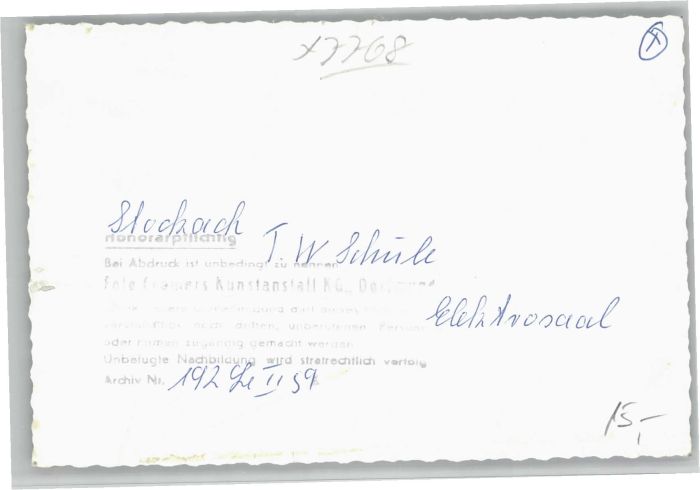 x7768
Stockach
T W Schule
Honorarpflichtig
Bei Abdruck ist unbedingt zu nennen
Foto Cramers Kunstanstalt KG., Dortmund
Elektrosaal
oder Firmen zugängig gemacht werden
Unbefugte Nachbildung wird strafrechtlich verfolg
Archiv Nr. 192 II 59
15,-